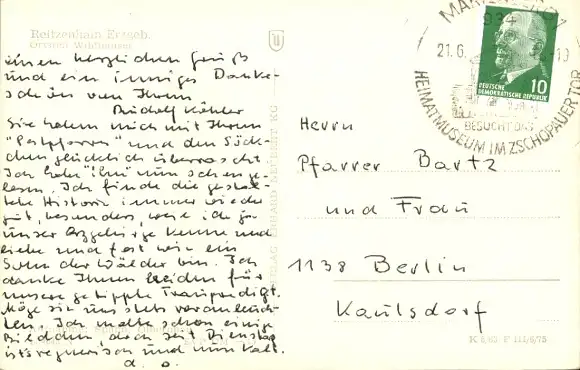 Reitzenhain Erzgeb.
Ortsteil Wildhausen
einen herzlichen Gruß
und ein inniges Danke-
schön von Ihrem
Rudolf Köhler
Sie haben mich mit Ihrem
und den
chen glücklich überrascht.
Ich habe "ihn" nun schon ge-
lesen. Ich finde die
Historie immer wieder
gut, besonders, weil ich ja
unser Erzgebirge kenne und
liebe und fast wie ein
Sohn der Wälder bin. Ich
danke Ihnen beiden für
unsere getippte Traupredigt.
Möge sie uns stets
ten. Ich malte schon einige
Bildchen, doch seit Dienstag
ists regnerisch und nun kalt.
d. O.
MARIENBERG 1
934
21.6.
HEIMATMUSEUM IM ZSCHOPAUER TOR
BESUCHT DAS
DEUTSCHE
DEMOKRATISCHE REPUBLIK
10
Herrn
Pfarrer Bartz
und Frau
1138 Berlin
Kaulsdorf